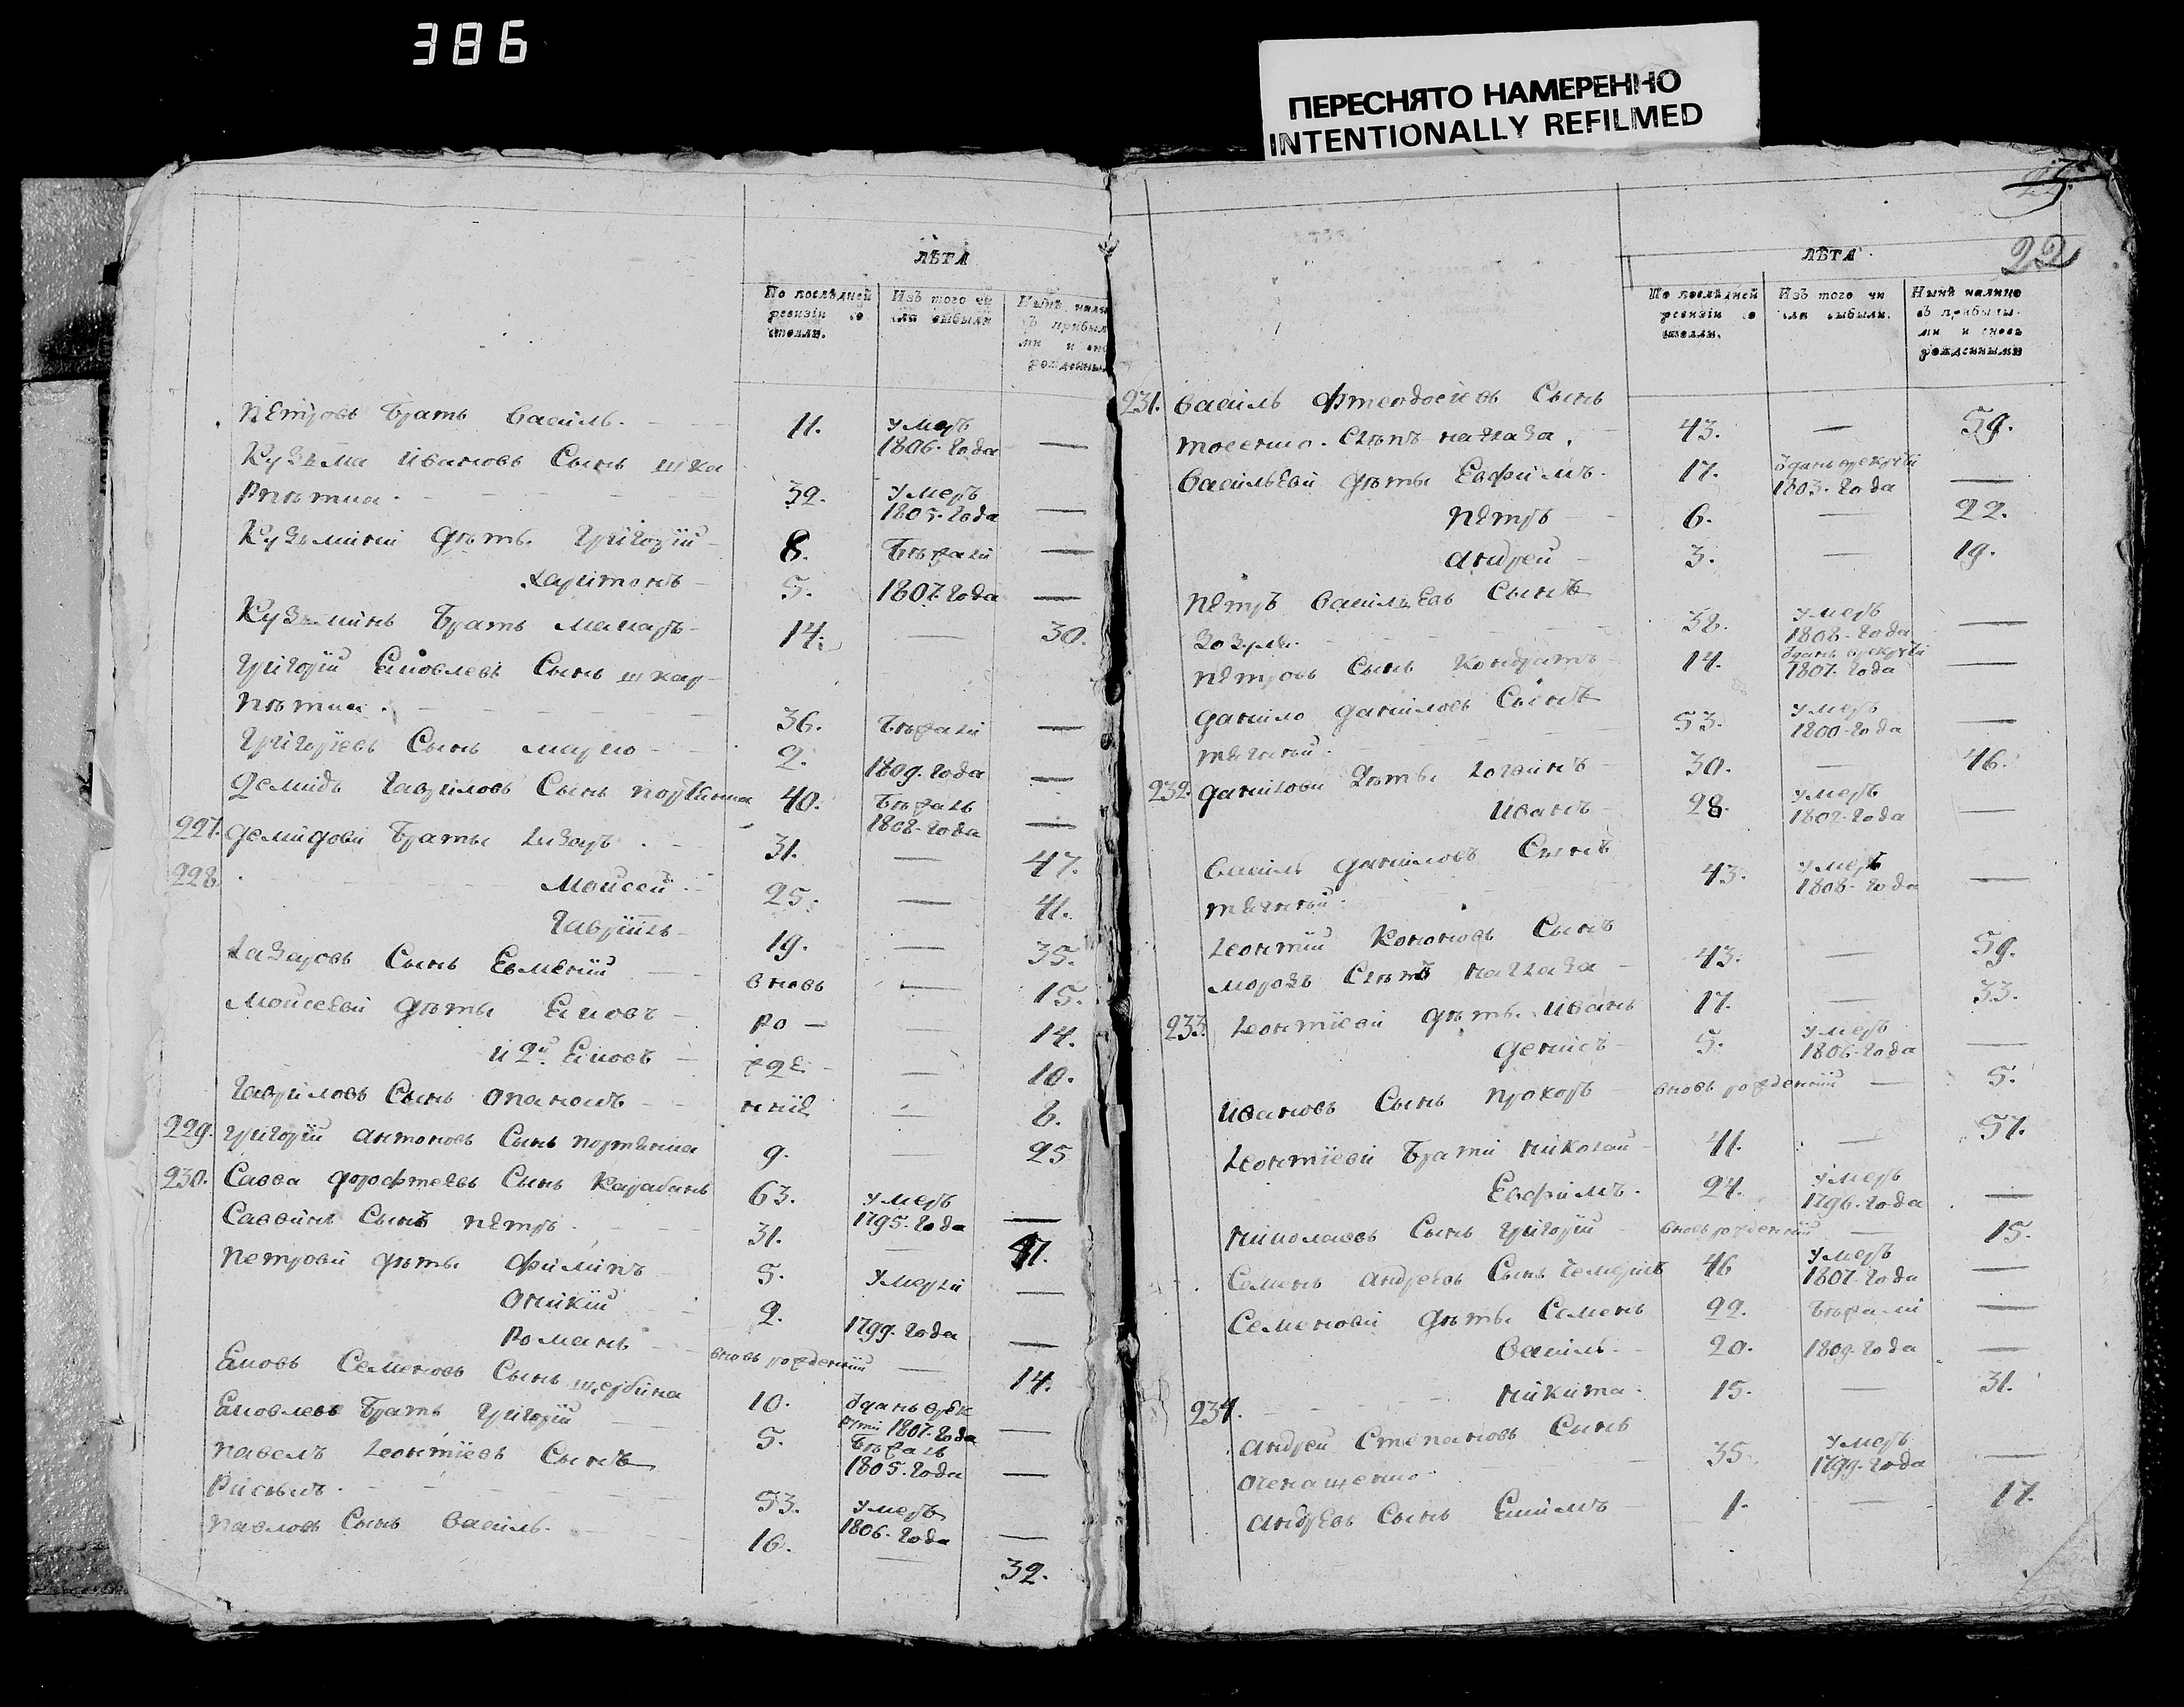 386
ПЕРЕСНЯТО НАМЕРЕННО
INTENTIONALLY REFILMED
ЛѢТА
По послѣдней ревизіи со стояли.
Изъ того чи сла выбыли
Нынѣ
Петровъ братъ Василь. 11. умеръ 1806. года —
Кузьма Ивановъ Сынъ шка
рпѣтка. 39. умеръ 1805. года —
Кузьмины дѣти Григорій 8. бѣжали —
Харитонъ 5. 1807. года —
Кузьминъ братъ Макаръ 14. — 30.
Григорій Яковлевъ Сынъ шкар
пѣтка. 36. бѣжали —
Григорьевъ Сынъ Марко 2. 1809. года —
Демидъ Гавриловъ Сынъ 40. бѣжалъ 1808. года —
227. Демидови братьи Лазаръ 31. — 47.
228. Моисей 25. — 41.
Гавріилъ 19. — 35.
Лазаровъ Сынъ Евменій вновь — 15.
Моисеевы дѣти Яковъ ро — — 14.
и 2й Яковъ жде — 10.
Гавриловъ Сынъ нній — 8.
229. Григорій Антоновъ Сынъ 9. — 25
230. Савва Сынъ Карабанъ 63. умеръ 1795. года —
Саввинъ Сынъ Петръ 31. — 47.
Петрови дѣти Филипъ 5. умерли —
Оникій 2. 1799. года —
Романъ вновь рожденній — 14.
Яковъ Семеновъ Сынъ щербина 10. зданъ врек руты 1807. года —
Яковлевъ братъ Григорій 5. бѣжалъ 1805. года —
Павелъ Леонтіевъ Сынъ
53. умеръ 1806. года —
Павловъ Сынъ Василь. 16. — 32.
22
ЛѢТА
По послѣдней ревизіи со стояли.
Изъ того чи сла выбыли.
Нынѣ налицо съ прибылы- ми и вновь рожденными
231. Василь Сынъ
слѣпъ на глаза. 43. — 59.
Васильеви дѣти Евфимъ. 17. зданъ врекруты 1803. года —
Петръ 6. — 22.
Андрей 3. — 19.
Петръ Васильевъ Сынъ
Зозуля. 38. умеръ 1808. года —
Петровъ Сынъ Кондратъ 14. зданъ врекруты 1807. года —
Данило Даниловъ Сынъ
53. умеръ 1800. года —
232. Данилови дѣти Логвинъ 30. — 46.
Иванъ 28. умеръ 1802. года —
Василь Даниловъ Сынъ
43. умеръ 1808. года —
Леонтій Кононовъ Сынъ
морозъ слѣпъ на глаза 43. — 59.
233. Леонтіеви дѣти Иванъ 17. — 33.
Денисъ 5. умеръ 1806. года —
Ивановъ Сынъ Прохоръ вновь рожденній — 5.
Леонтіеви брати Николай 41. — 57.
Евфимъ. 24. умеръ 1796. года —
Николаевъ Сынъ Григорій вновь рожденній — 15.
Семенъ Андреевъ Сынъ 46 умеръ 1807. года —
Семенови дѣти Семенъ 22. бѣжали —
Василь. 20. 1809. года —
234. Никита. 15. — 31.
Андрей Степановъ Сынъ
35. умеръ 1799. года —
Андреевъ Сынъ Якимъ 1. — 17.